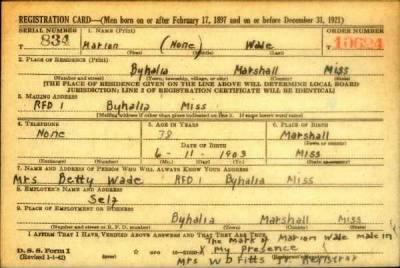 REGISTRATION CARD—(Men born on or after February 17, 1897 and on or before December 31, 1921)
SERIAL NUMBER 1. NAME (Print) ORDER NUMBER
T 834 Marion (None) Wade 10624
(First) (Middle) (Last)
2. PLACE OF RESIDENCE (Print)
Byhalia Marshall Miss
(Number and street) (Town, township, village, or city) (County) (State)
[THE PLACE OF RESIDENCE GIVEN ON THE LINE ABOVE WILL DETERMINE LOCAL BOARD
JURISDICTION; LINE 2 OF REGISTRATION CERTIFICATE WILL BE IDENTICAL]
3. MAILING ADDRESS
RFD 1 Byhalia Miss
[Mailing address if other than place indicated on line 2. If same insert word same]
4. TELEPHONE 5. AGE IN YEARS 6. PLACE OF BIRTH
None 38 Marshall
DATE OF BIRTH (Town or county)
6 - 11 - 1903 Miss
(Exchange) (Number) (Mo.) (Day) (Yr.) (State or country)
7. NAME AND ADDRESS OF PERSON WHO WILL ALWAYS KNOW YOUR ADDRESS
Mrs Betty Wade RFD 1 Byhalia Miss
8. EMPLOYER'S NAME AND ADDRESS
Self
9. PLACE OF EMPLOYMENT OR BUSINESS
Byhalia Marshall Miss
(Number and street or R. F. D. number) (Town) (County) (State)
I AFFIRM THAT I HAVE VERIFIED ABOVE ANSWERS AND THAT THEY ARE TRUE.
The mark of Marion Wade made in
D. S. S. Form 1 X my presence
(Revised 1-1-42) Mrs W D Fitts Jr. Registrar